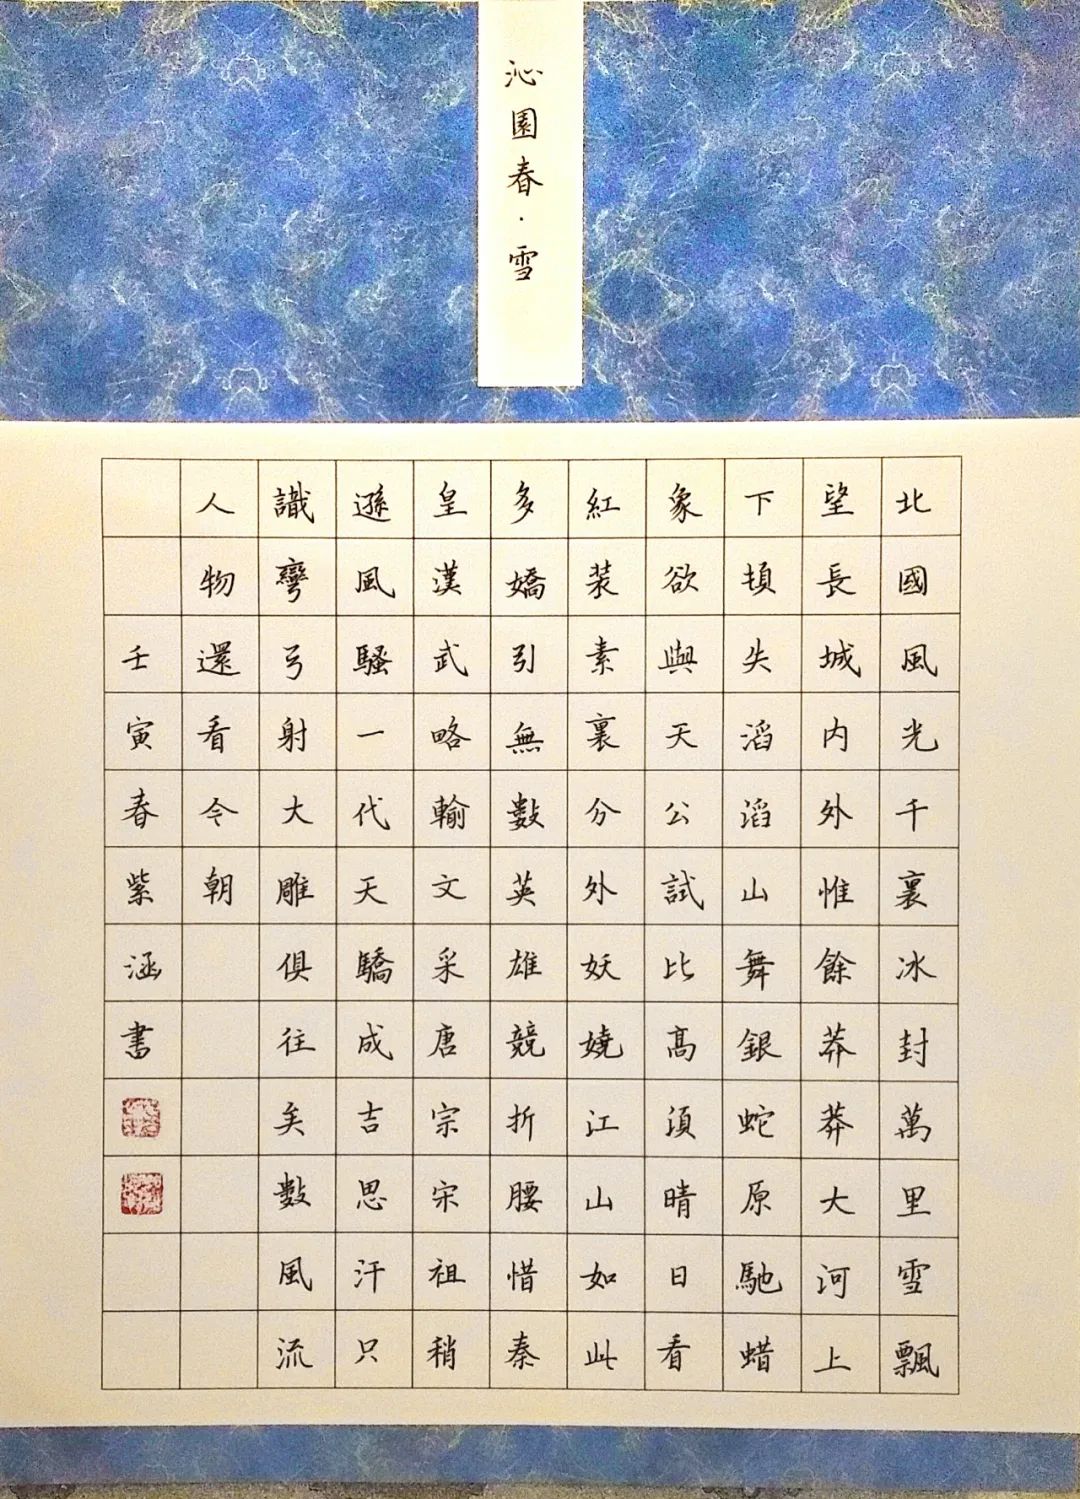 沁園春·雪
北國風光千裏冰封萬里雪飄
望長城内外惟餘莽莽大河上
下頓失滔滔山舞銀蛇原馳蜡
象欲與天公試比髙須晴日看
紅装素裹分外妖嬈江山如此
多嬌引無數英雄競折腰惜秦
皇漢武略輸文采唐宗宋祖稍
遜風騷一代天驕成吉思汗只
識彎弓射大雕俱往矣數風流
人物還看今朝
壬寅春紫涵書